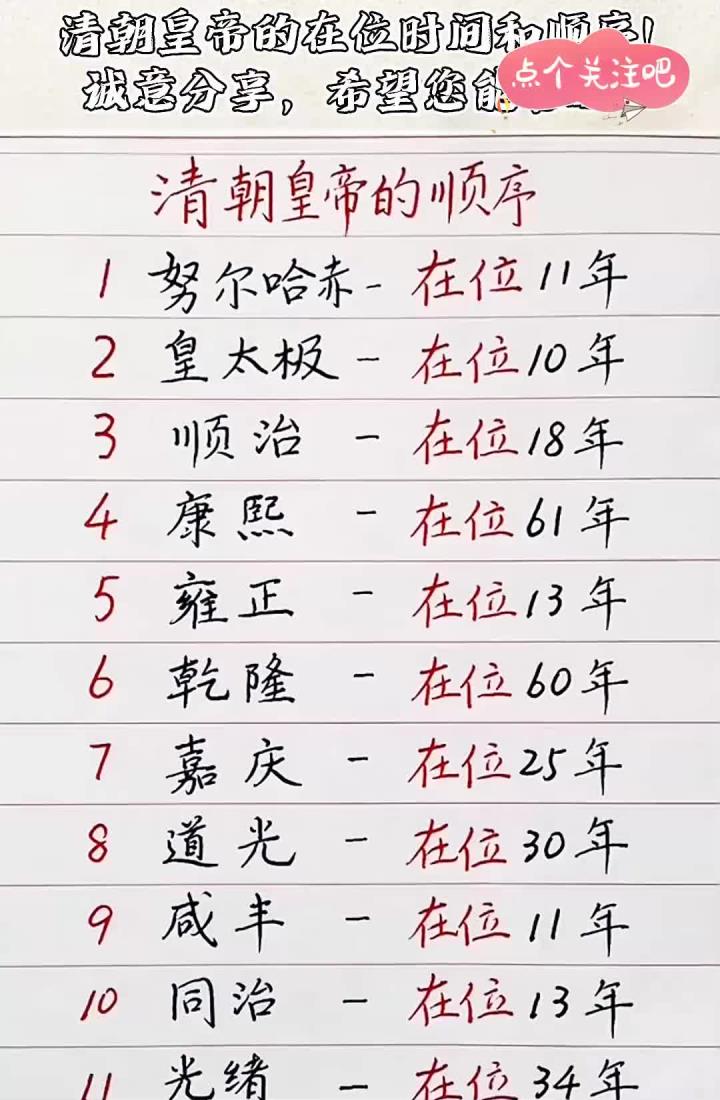 清朝皇帝的在位时间和顺序!
诚意分享，希望您能
点个关注吧
清朝皇帝的顺序
1 努尔哈赤 - 在位11年
2 皇太极 - 在位10年
3 顺治 - 在位18年
4 康熙 - 在位61年
5 雍正 - 在位13年
6 乾隆 - 在位60年
7 嘉庆 - 在位25年
8 道光 - 在位30年
9 咸丰 - 在位11年
10 同治 - 在位13年
11 光绪 - 在位34年